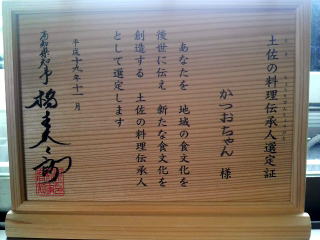 土佐の料理伝承人選定証
かつおちゃん 様
あなたを 地域の食文化を
後世に伝え 新たな食文化を
創造する 土佐の料理伝承人
として選定します
平成十九年十一月
高知県知事 橋本大二郎